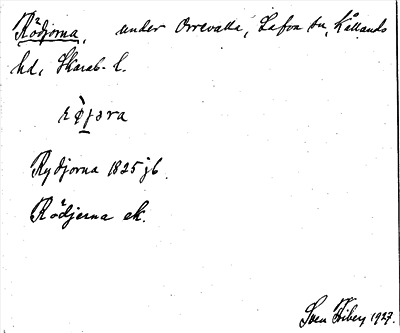 Rödjorna, under Orrevalla, Lafva sn, Kållands
hd, Skarab. l.
Rydjorna 1825 jb
Rödjerna ek.
Sven Friberg 1927.